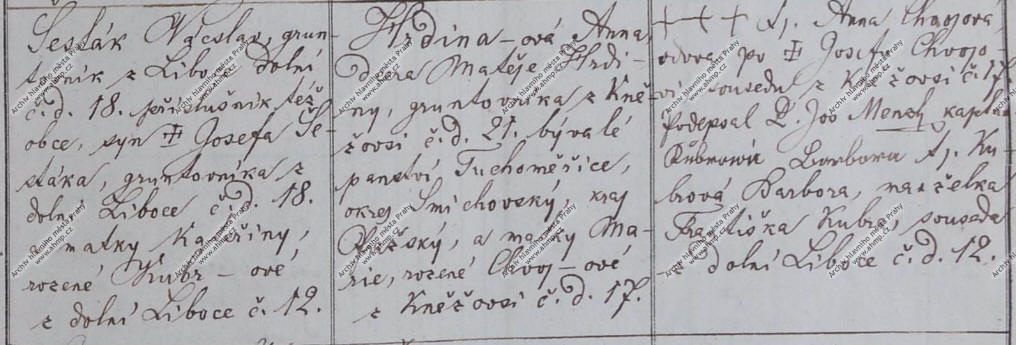 Šesták Václav, grun-
tovník z Liboce dolní
č. d. 18. příslušník též
obce, syn ✝ Josefa Še-
stáka, gruntovníka z
dolní Liboce č. d. 18.
a matky Kateřiny,
rozené Kubr-ové,
z dolní Liboce č. 12.
Hrdina-ová Anna
dcera Matěje Hrdi-
ny, gruntovníka z Kně-
žovsi č. d. 21. bývalé
panství Tuchoměřice,
okres Smíchovský, kraj
Pražský, a matky Ma-
rie, rozené Chvoj-ové
z Kněžovsi č. d. 17.
+++ tj. Anna Chvojová
vdova po ✝ Josefu Chvojo-
vi, sousedu z Kněžovsi č. 17.
Podepsal P. Jos Mensch kaplan
Kubrowa Barbora tj. Ku-
brová Barbora, manželka
Františka Kubra, souseda
z dolní Liboce č. d. 12.
Archiv hlavního města Prahy
www.ahmp.cz